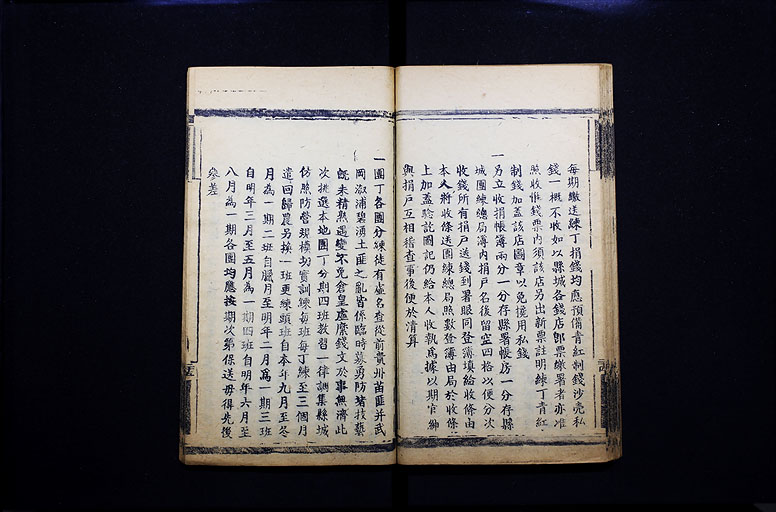 每期繳送練丁捐錢均應預備青紅制錢沙売私
錢一概不收如以縣城各錢店卽票繳署者亦准
照收惟錢票內須該店另出新票註明練丁青紅
制錢加蓋該店圖章以免攙用私錢
一另立收捐帳簿兩分一分存縣署帳房一分存縣
城團練總局簿內捐戶名後留空四格以便分次
收錢所有捐戶送錢到署眼同登簿填給收條由
本人將收條送團練總局照數登簿由局於收條
上加蓋驗訖圖記仍給本人收執爲據以期官紳
與捐戶互相稽查事後便於清算
一團丁各團分練徒有虛名查從前貴州苗匪并武
岡溆浦碧湧土匪之亂皆係臨時募勇防堵技藝
旣未精熟遇變不免倉皇虛縻錢文於事無濟此
次挑選本地團丁分期四班教習一律調集縣城
仿照防營規模切實訓練每班每丁練至三個月
遣回歸農另換一班更練頭班自本年九月至冬
月為一期二班自臘月至明年二月為一期三班
自明年三月至五月為一期四班自明年六月至
八月為一期各團均應按期次第保送毋得先後
參差